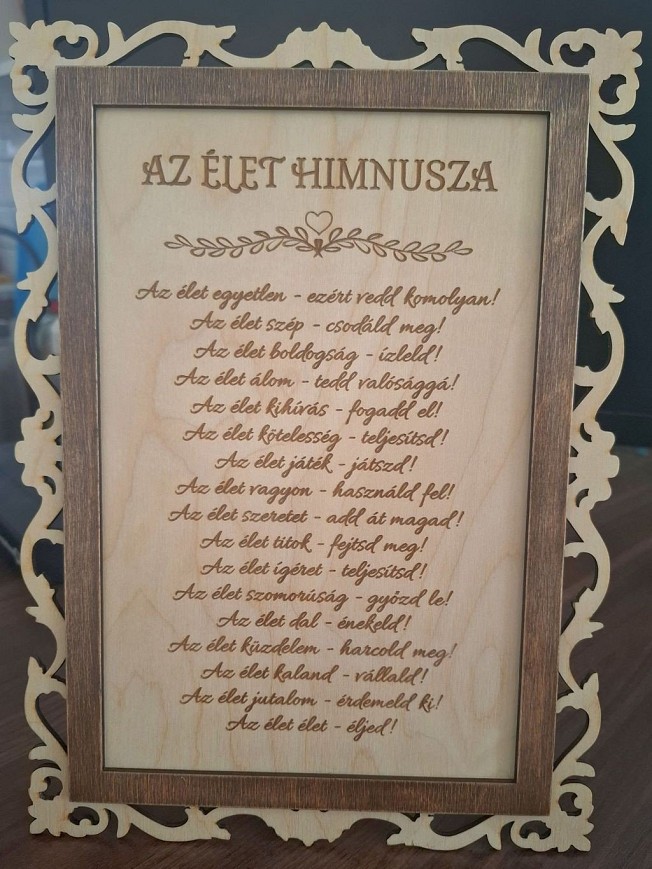 AZ ÉLET HIMNUSZA
Az élet egyetlen - ezért vedd komolyan!
Az élet szép - csodáld meg!
Az élet boldogság - ízleld!
Az élet álom - tedd valósággá!
Az élet kihívás - fogadd el!
Az élet kötelesség - teljesítsd!
Az élet játék - játszd!
Az élet vagyon - használd fel!
Az élet szeretet - add át magad!
Az élet titok - fejtsd meg!
Az élet ígéret - teljesítsd!
Az élet szomorúság - győzd le!
Az élet dal - énekeld!
Az élet küzdelem - harcold meg!
Az élet kaland - vállald!
Az élet jutalom - érdemeld ki!
Az élet élet - éljed!